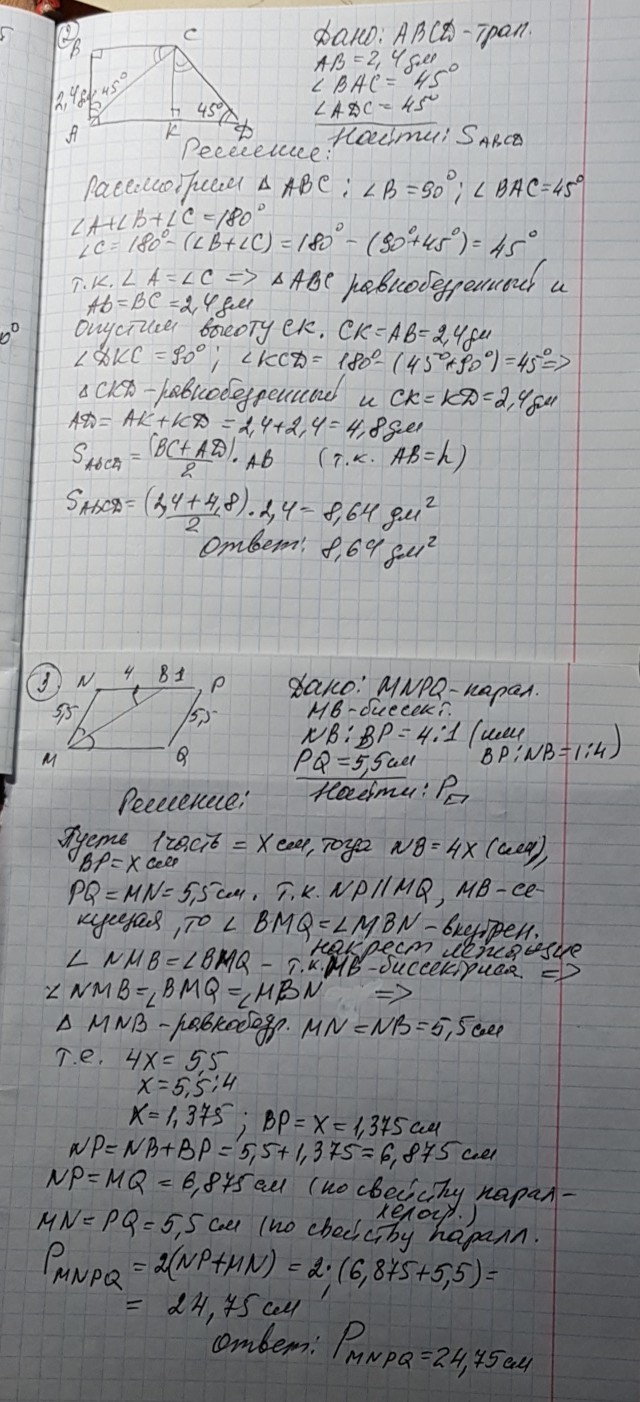 2
B
C
2,4 дм
45°
45°
A
K
D
Дано: ABCD-трап.
AB=2,4дм
∠BAC= 45°
∠ADC=45°
Найти: S ABCD
Решение:
Рассмотрим △ ABC; ∠B=90°; ∠BAC=45°
∠A+∠B+∠C=180°
∠C=180°-(∠B+∠C)=180°-(90°+45°)=45°
т.к. ∠A=∠C => △ABC равнобедренный и
AB=BC=2,4дм
Опустим высоту CK. CK=AB=2,4дм
∠DKC=90°; ∠KCD= 180°-(45°+90°)=45°=>
△CKD-равнобедренный и CK=KD=2,4дм
AD= AK+KD=2,4+2,4=4,8дм
S ABCD = (BC+AD)/2 · AB (т.к. AB=h)
S ABCD = (2,4+4,8)/2 · 2,4 = 8,64 дм²
Ответ: 8,64 дм²
3
N 4 B 1 P
5,5
5,5
M
Q
Дано: MNPQ-парал.
MB-биссект.
NB:BP=4:1 (или
PQ=5,5см BP:NB=1:4)
Найти: P▱
Решение:
Пусть 1часть = x см, тогда NB=4x (см),
BP=x см
PQ=MN=5,5см. т.к. NP//MQ, MB-се-
кущая, то ∠ BMQ=∠MBN-внутрен.
накрест лежащие
∠ NMB=∠BMQ - т.к. MB-биссектриса =>
∠ NMB=∠BMQ=∠MBN =>
△ MNB-равнобедр. MN=NB=5,5см
т.е. 4x=5,5
x=5,5:4
x=1,375; BP=x=1,375см
NP=NB+BP=5,5+1,375=6,875см
NP=MQ=6,875см (по свойству парал-
лелогр.)
MN=PQ=5,5см (по свойству паралл.
P MNPQ =2(NP+MN)=2·(6,875+5,5)=
= 24,75см
Ответ: P MNPQ=24,75см